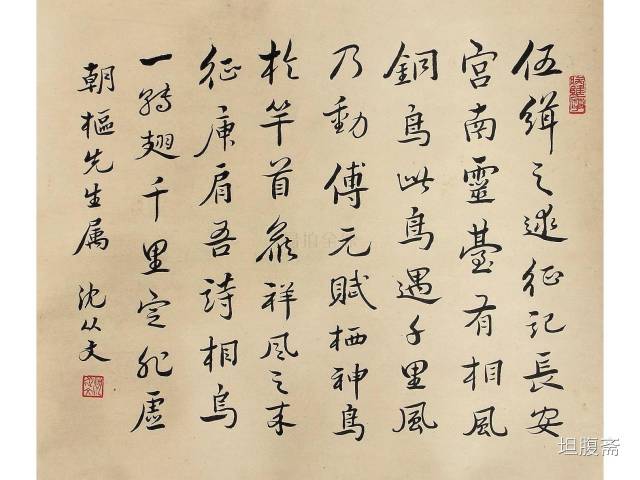 伍緝之述征記長安
宮南靈臺有相風
銅鳥此鳥遇千里風
乃動傅元賦栖神鳥
於竿首祥風之来
征庾肩吾詩相烏
一轉翅千里定非虛
朝樞先生属 沈从文
坦腹斋